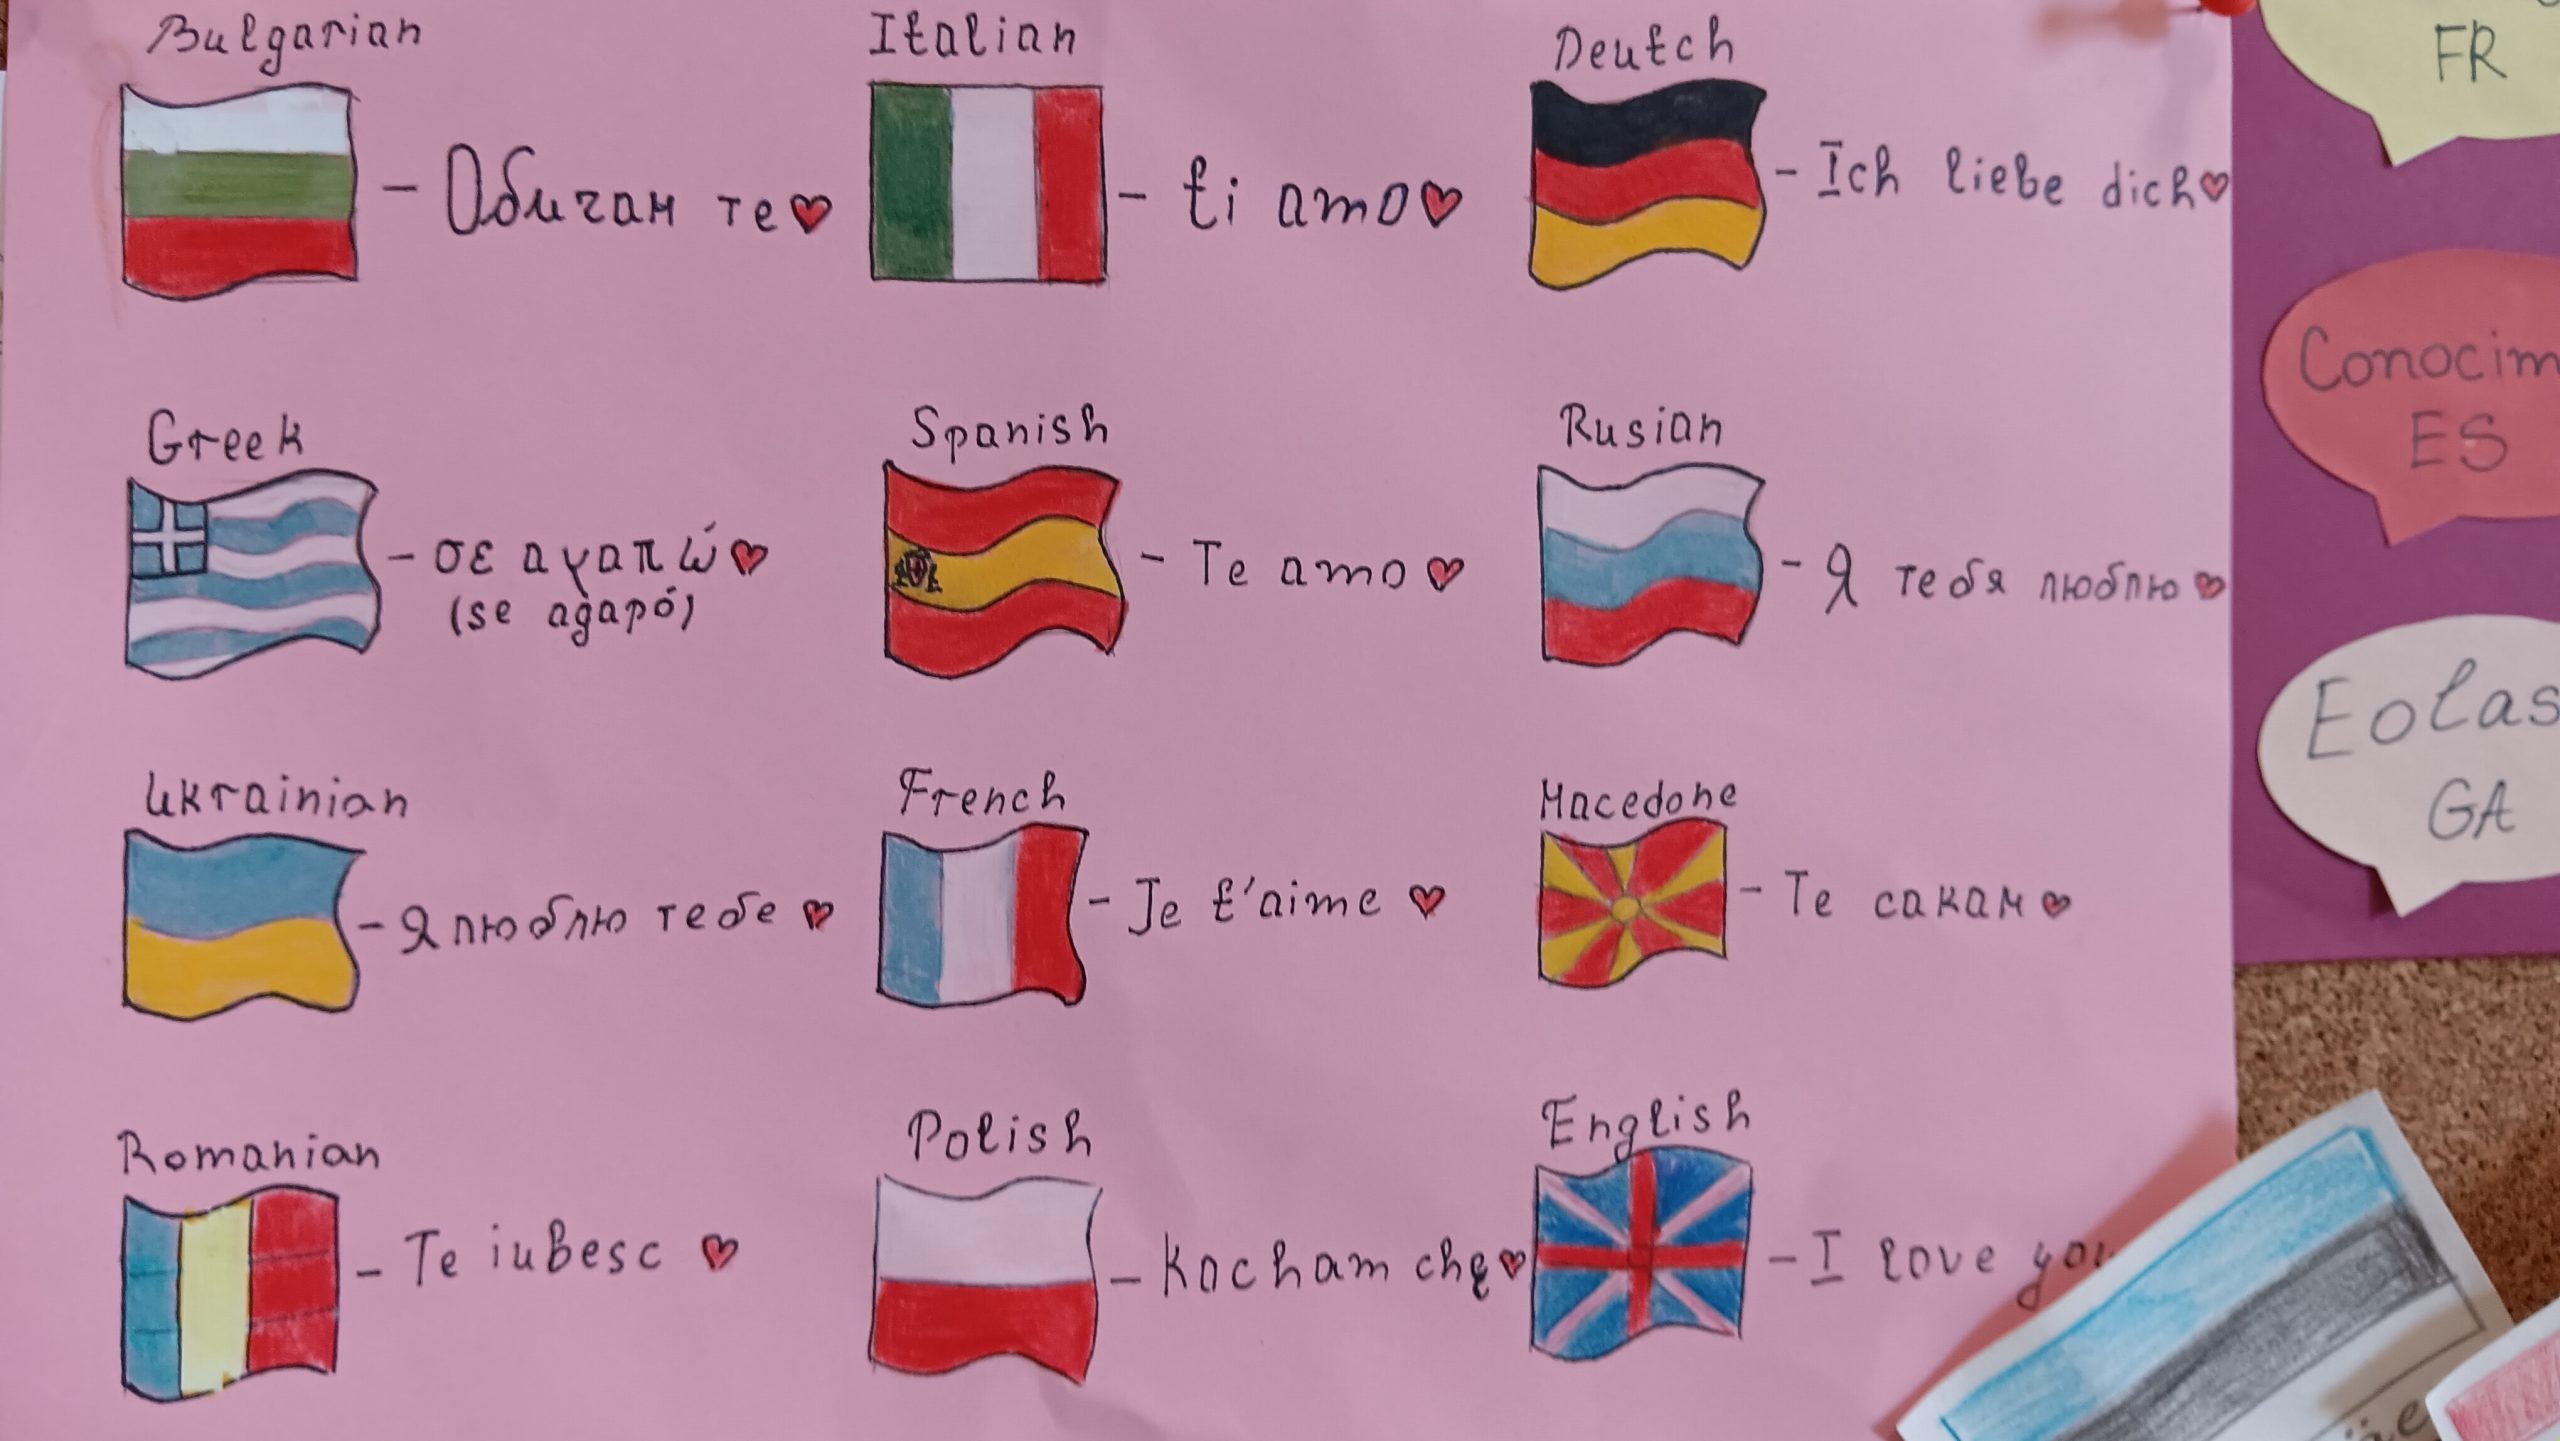 Bulgarian
Обичам те
Italian
ti amo
Deutch
Ich liebe dich
Greek
σε αγαπώ
(se agapó)
Spanish
Te amo
Rusian
Я тебя люблю
Ukrainian
Я люблю тебе
French
Je t'aime
Macedone
Те сакам
Romanian
Te iubesc
Polish
Kocham chę
English
I love you
FR
Conocim
ES
Eolas
GA